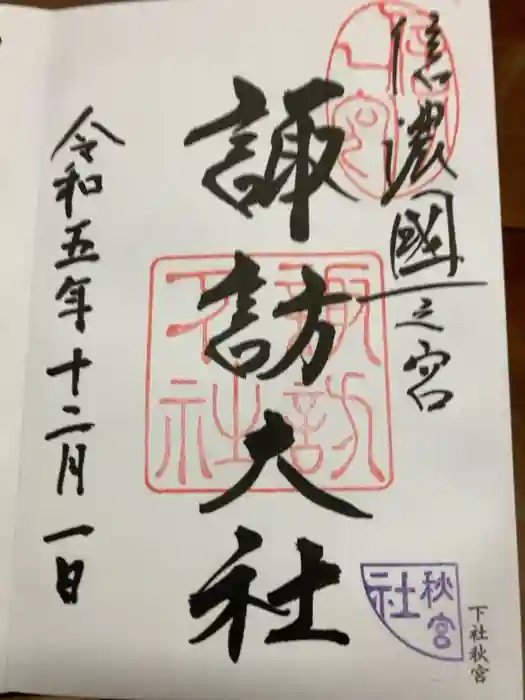 信濃國一之宮
諏訪大社
令和五年十二月一日
諏訪
下社
秋宮
社
下社秋宮